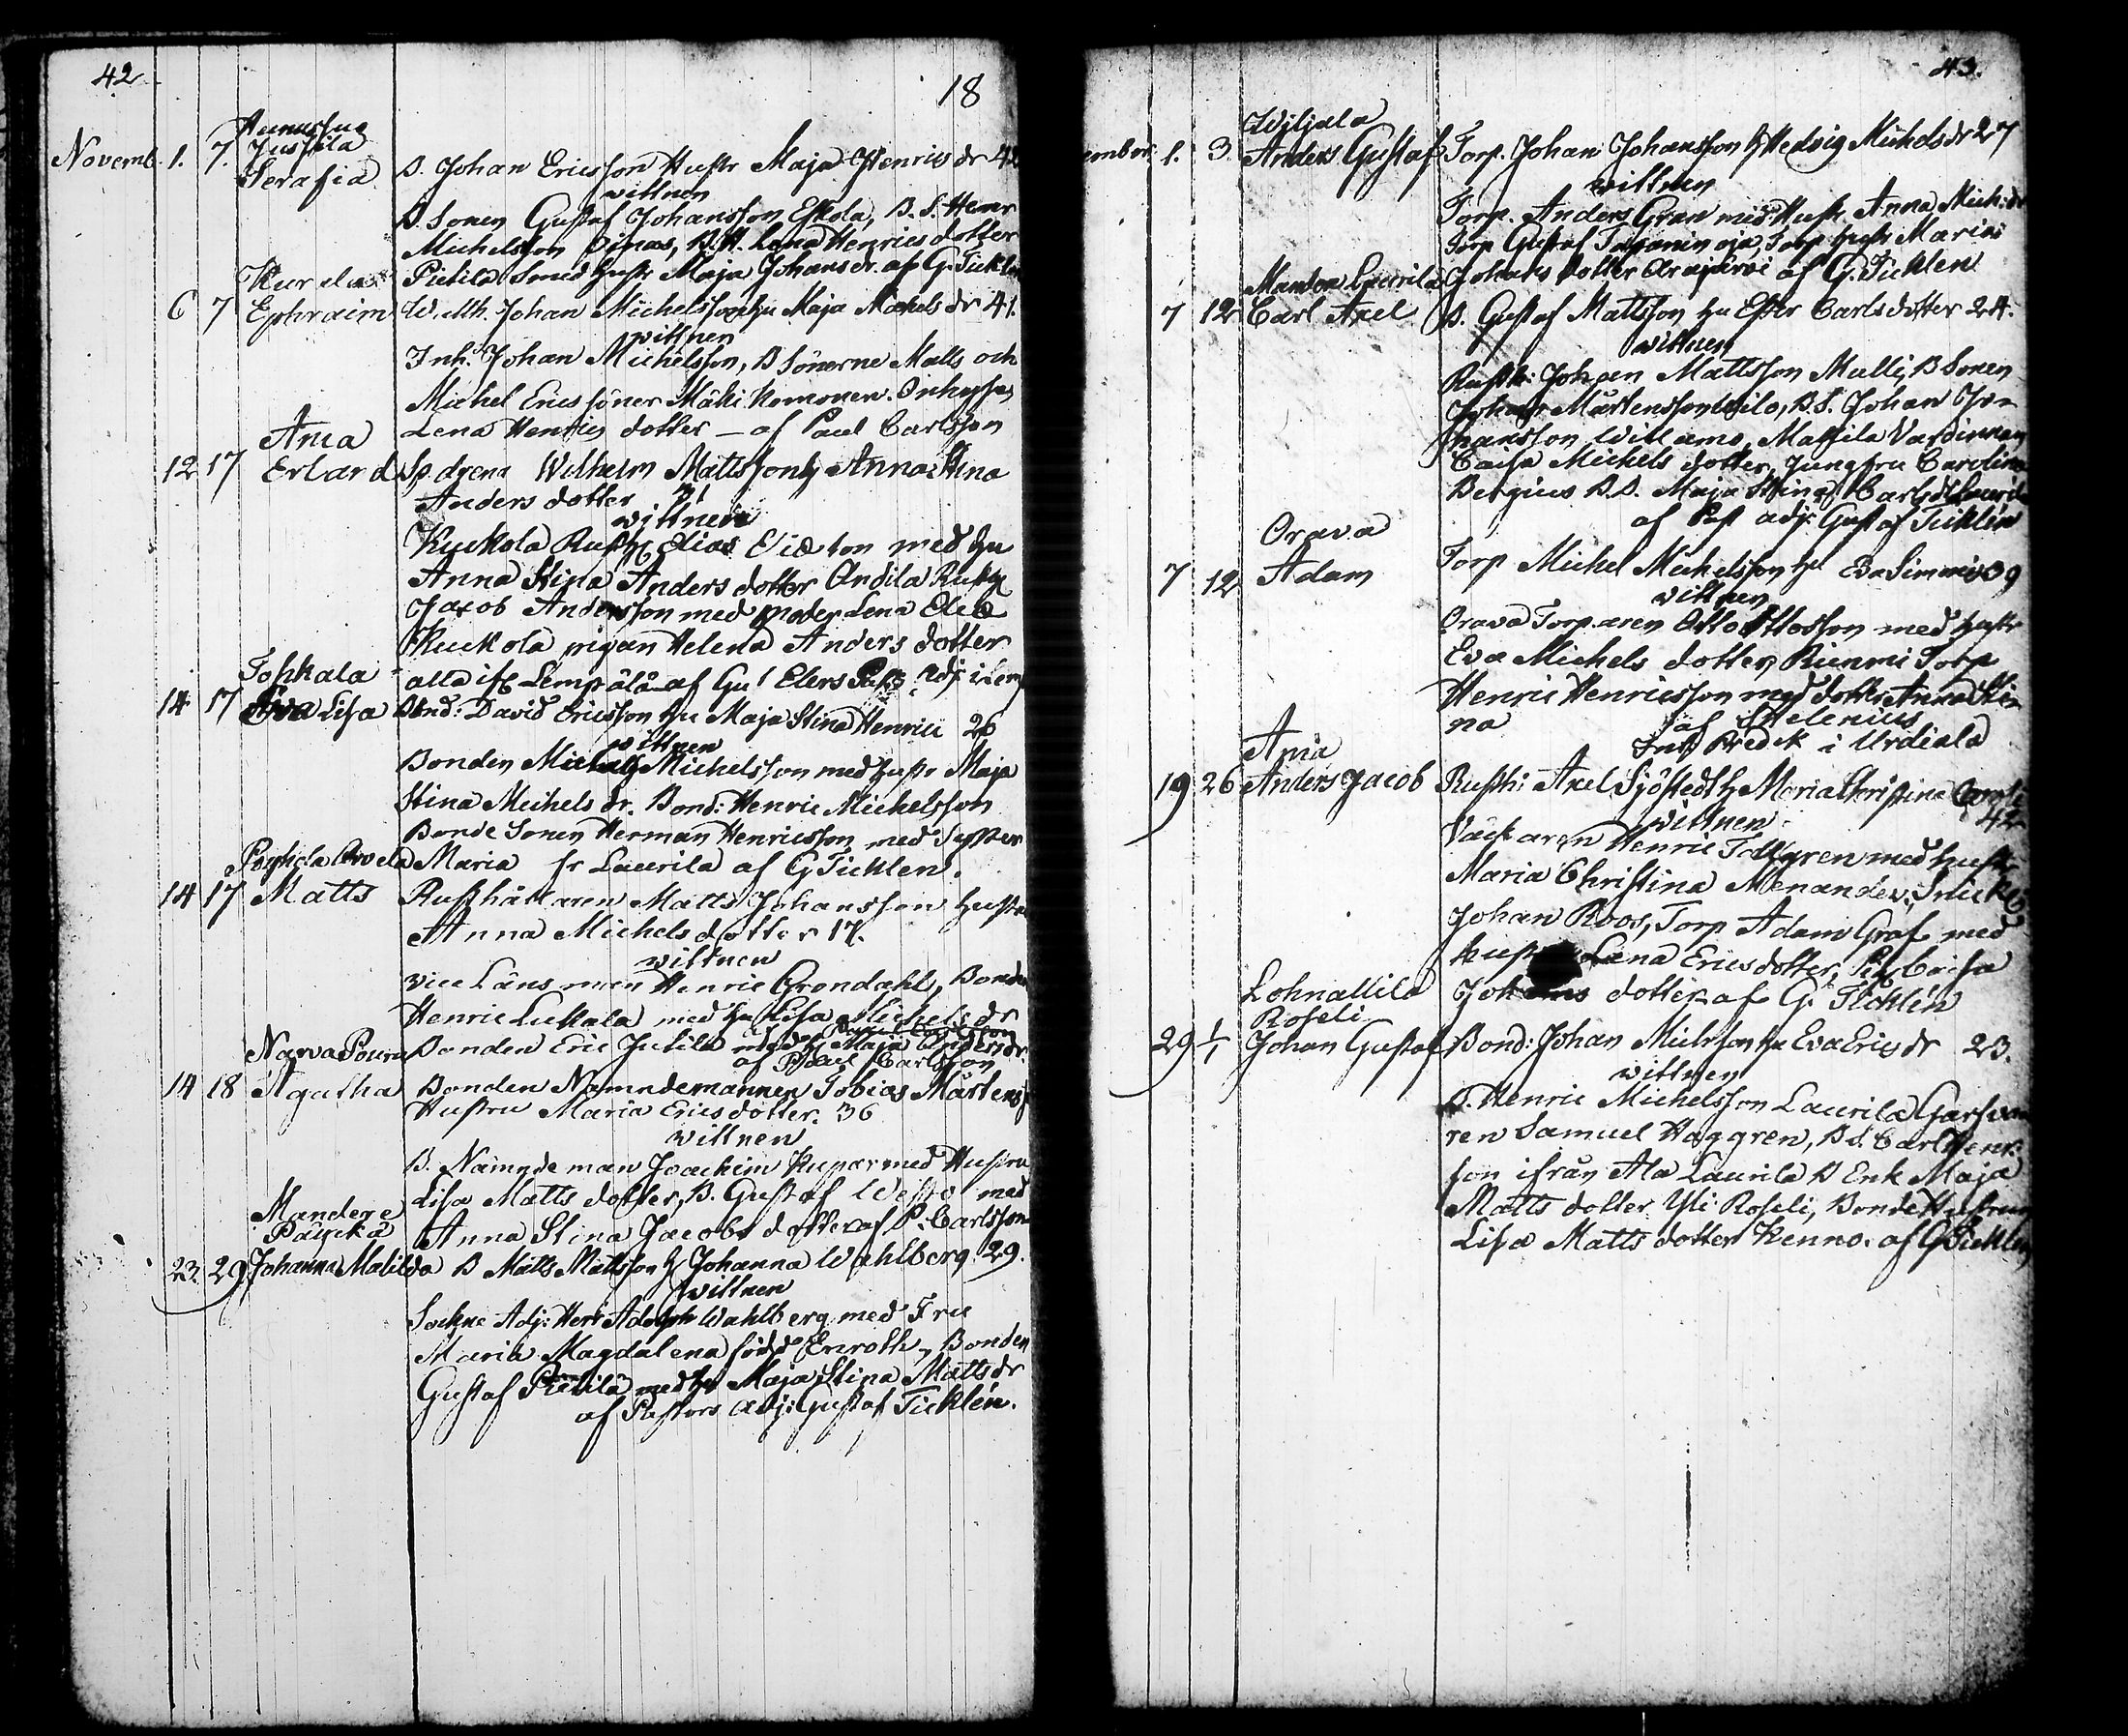 42
18
Novemb. 1. 7. Jussila
Serafia B. Johan Ericsson Hustr Maja Henrics dr 42
wittnen
B. Sonen Gustaf Johansson Eskola, B. S. Henr
Michelsson, B. H. Lena Henrics dotter
Pietilä Smed hustr Maja Johans dr. af G. Ticklen
Kurela
6 7 Ephraim Wallm. Johan Michelsson hu Maja Michels dr 41.
wittnen
Inh. Johan Michelsson, B Sönerne Matts och
Michel Ericssöner Mäki Komonen. Inhyses
Lena Henrics dotter – af Paul Carlsson
Ania
12 17 Erland Sp. dreng Wilhelm Mattsson h Anna Stina
Anders dotter 31
wittnen
Kuckola Rusth Elias Elia son med hu
Anna Stina Anders dotter Andila Rusth
Jacob Andersson med moder Lena Elia
Kuckola pigan Helena Anders dotter
alla ifr Lempälä af Gu! Elers Past. Adj. i Lemp
Tophkala
14 17 Eva Lisa Bond: David Ericsson hu Maja Stina Henric 26
wittnen
Bonden Michel Michelsson med hustr Maja
Stina Michels dr. Bond: Henric Michelsson
Bonde Sonen Herman Henricsson med Syster
Maria fr Laurila af G Ticklen.
Pöyhölä Arvela
14 17 Matts Rusthållaren Matts Johansson hustru
Anna Michels dotter 17.
wittnen
vice Läns man Henric Grondahl, Bonden
Henric Luckala med hu Lisa Michels dr
Bonden Eric Jutila med h Maja Anders dr.
af Paul Carlsson
Narva Pouru
14 18 Agatha Bonden Nämndemannen Tobias Mårtenss
Hustru Maria Erics dotter. 36
wittnen
B. Nämnde man Joachim Kupar med Hustru
Lisa Matts dotter, B. Gustaf Westo med
Anna Stina Jacobs dotter af P. Carlsson
Mandere
Päyckä
23. 29. Johanna Matilda B Matts Mattsson h Johanna Wahlberg 29.
wittnen
Sockne Adj: Herr Adolph Wahlberg med Fru
Maria Magdalena född Enroth, Bonden
Gustaf Pietilä med hu Maja Stina Matts dr
af Pastors Adj: Gustaf Ticklén.
43.
Wiljala
ember. 1. 3. Anders Gustaf Torp. Johan Johansson h Hedvig Michels dr 27
wittnen
Torp. Anders Gran med Hustr. Anna Mich: dr
Torp Gustaf Tapanin oja, Torp hustr Maria
Johans dotter Arajärvi af G. Ticklen
Laurila
7 12 Carl Axel B. Gustaf Mattsson hu Ester Carls dotter 24.
wittnen
Rusth: Johan Mattsson Mulli, B Sonen
Johan Mårtensson Uilo, B. S. Johan Jo-
hansson Willamo, Mattila Vardinnan
Caisa Michels dotter, Jungfru Carolina
Bergius B. D. Maja Stina Carls dr Laurila
af Past adj: Gustaf Ticklén
Orava
7 12 Adam Torp Michel Michelsson hu Eva Simons 39
wittnen
Orava Torparen Otto Ottosson med hustr
Eva Michels dotter, Kienmi Torp
Henric Henricsson med dotter Anna Sti-
na af Helenius
Predik i Urdiala
Ania
19 26 Anders Jacob Rusth: Axel Sjöstedt h Maria Christina
42
wittnen
Henric Tallgren med hustr
Maria Christina Menander, Snick
Johan Roos, Torp Adam Graf med
hustr Lena Erics dotter, Pig Caisa
Johans dotter af G. Ticklén
Lohnallila
Roseli
29 1/1 Johan Gustaf Bond: Johan Michelsson hu Eva Erics dr 23.
wittnen
B. Henric Michelsson Laurila Garfva
ren Samuel Haggren, B S. Carl Henr.
son ifrån Ala Laurila B Enk Maja
Matts dotter Yli Roseli, Bonde Hustrun
Lisa Matts dotter Kenno. af G Ticklen